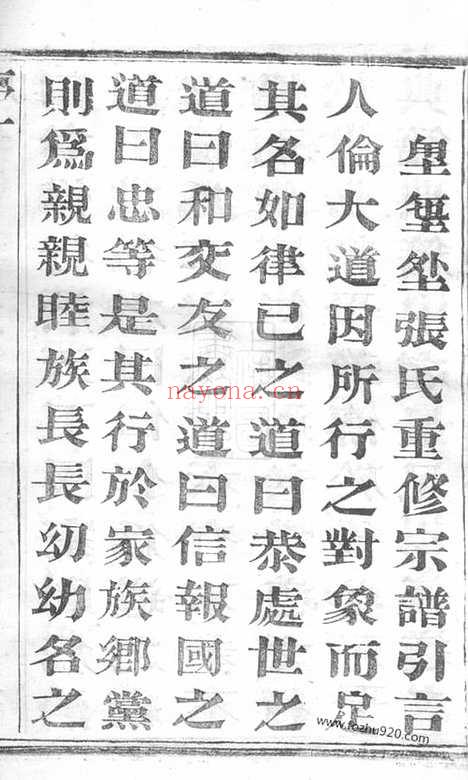 張氏重修宗譜引言
人倫大道因所行之對象而定
其名如律己之道曰恭處世之
道曰和交友之道曰信報國之
道曰忠等是其行於家族鄉黨
則爲親親睦族長長幼幼名之
nayona.cn
www.fozhu920.com